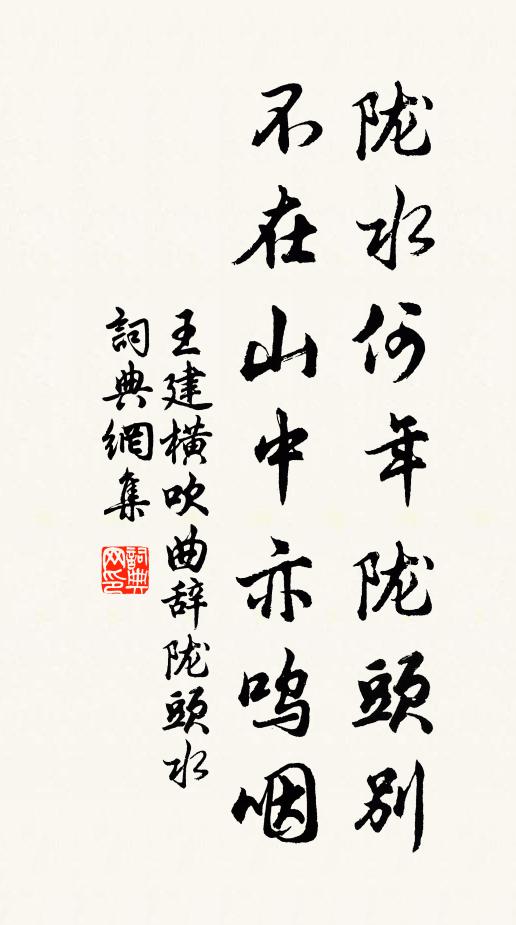 陇水何年陇頭别
不在山中亦呜咽
王建横吹曲辞陇頭水
詞典網集
詞典网印